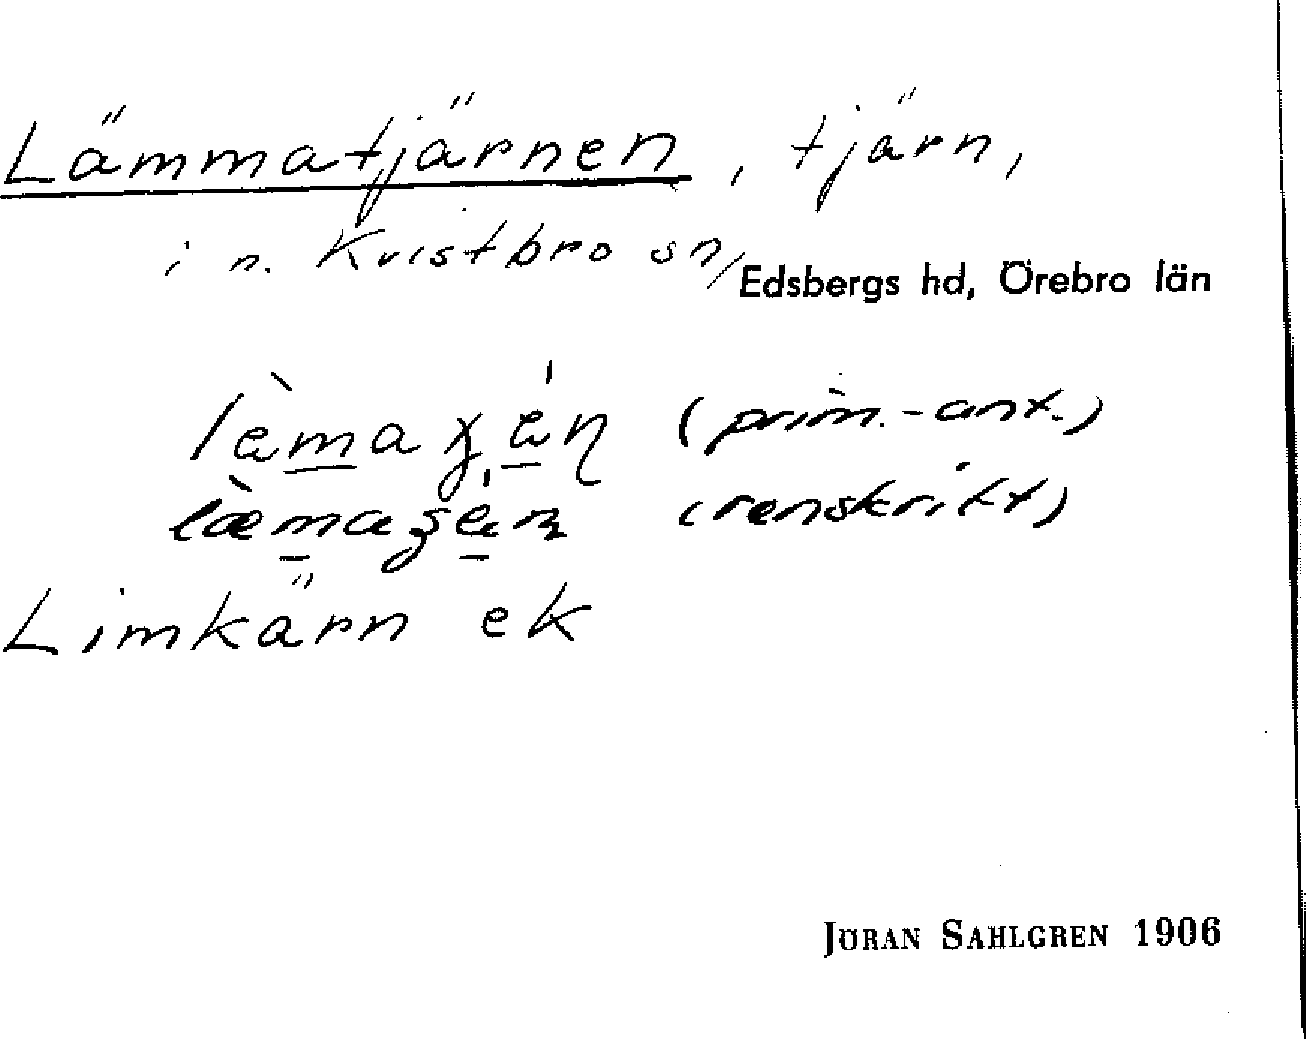 Lämmatjärnen, tjärn,
i n. Kvistbro sn, Edsbergs hd, Örebro län
(prim.-ant.)
(renskrift)
Limkärn ek
JÖRAN SAHLGREN 1906